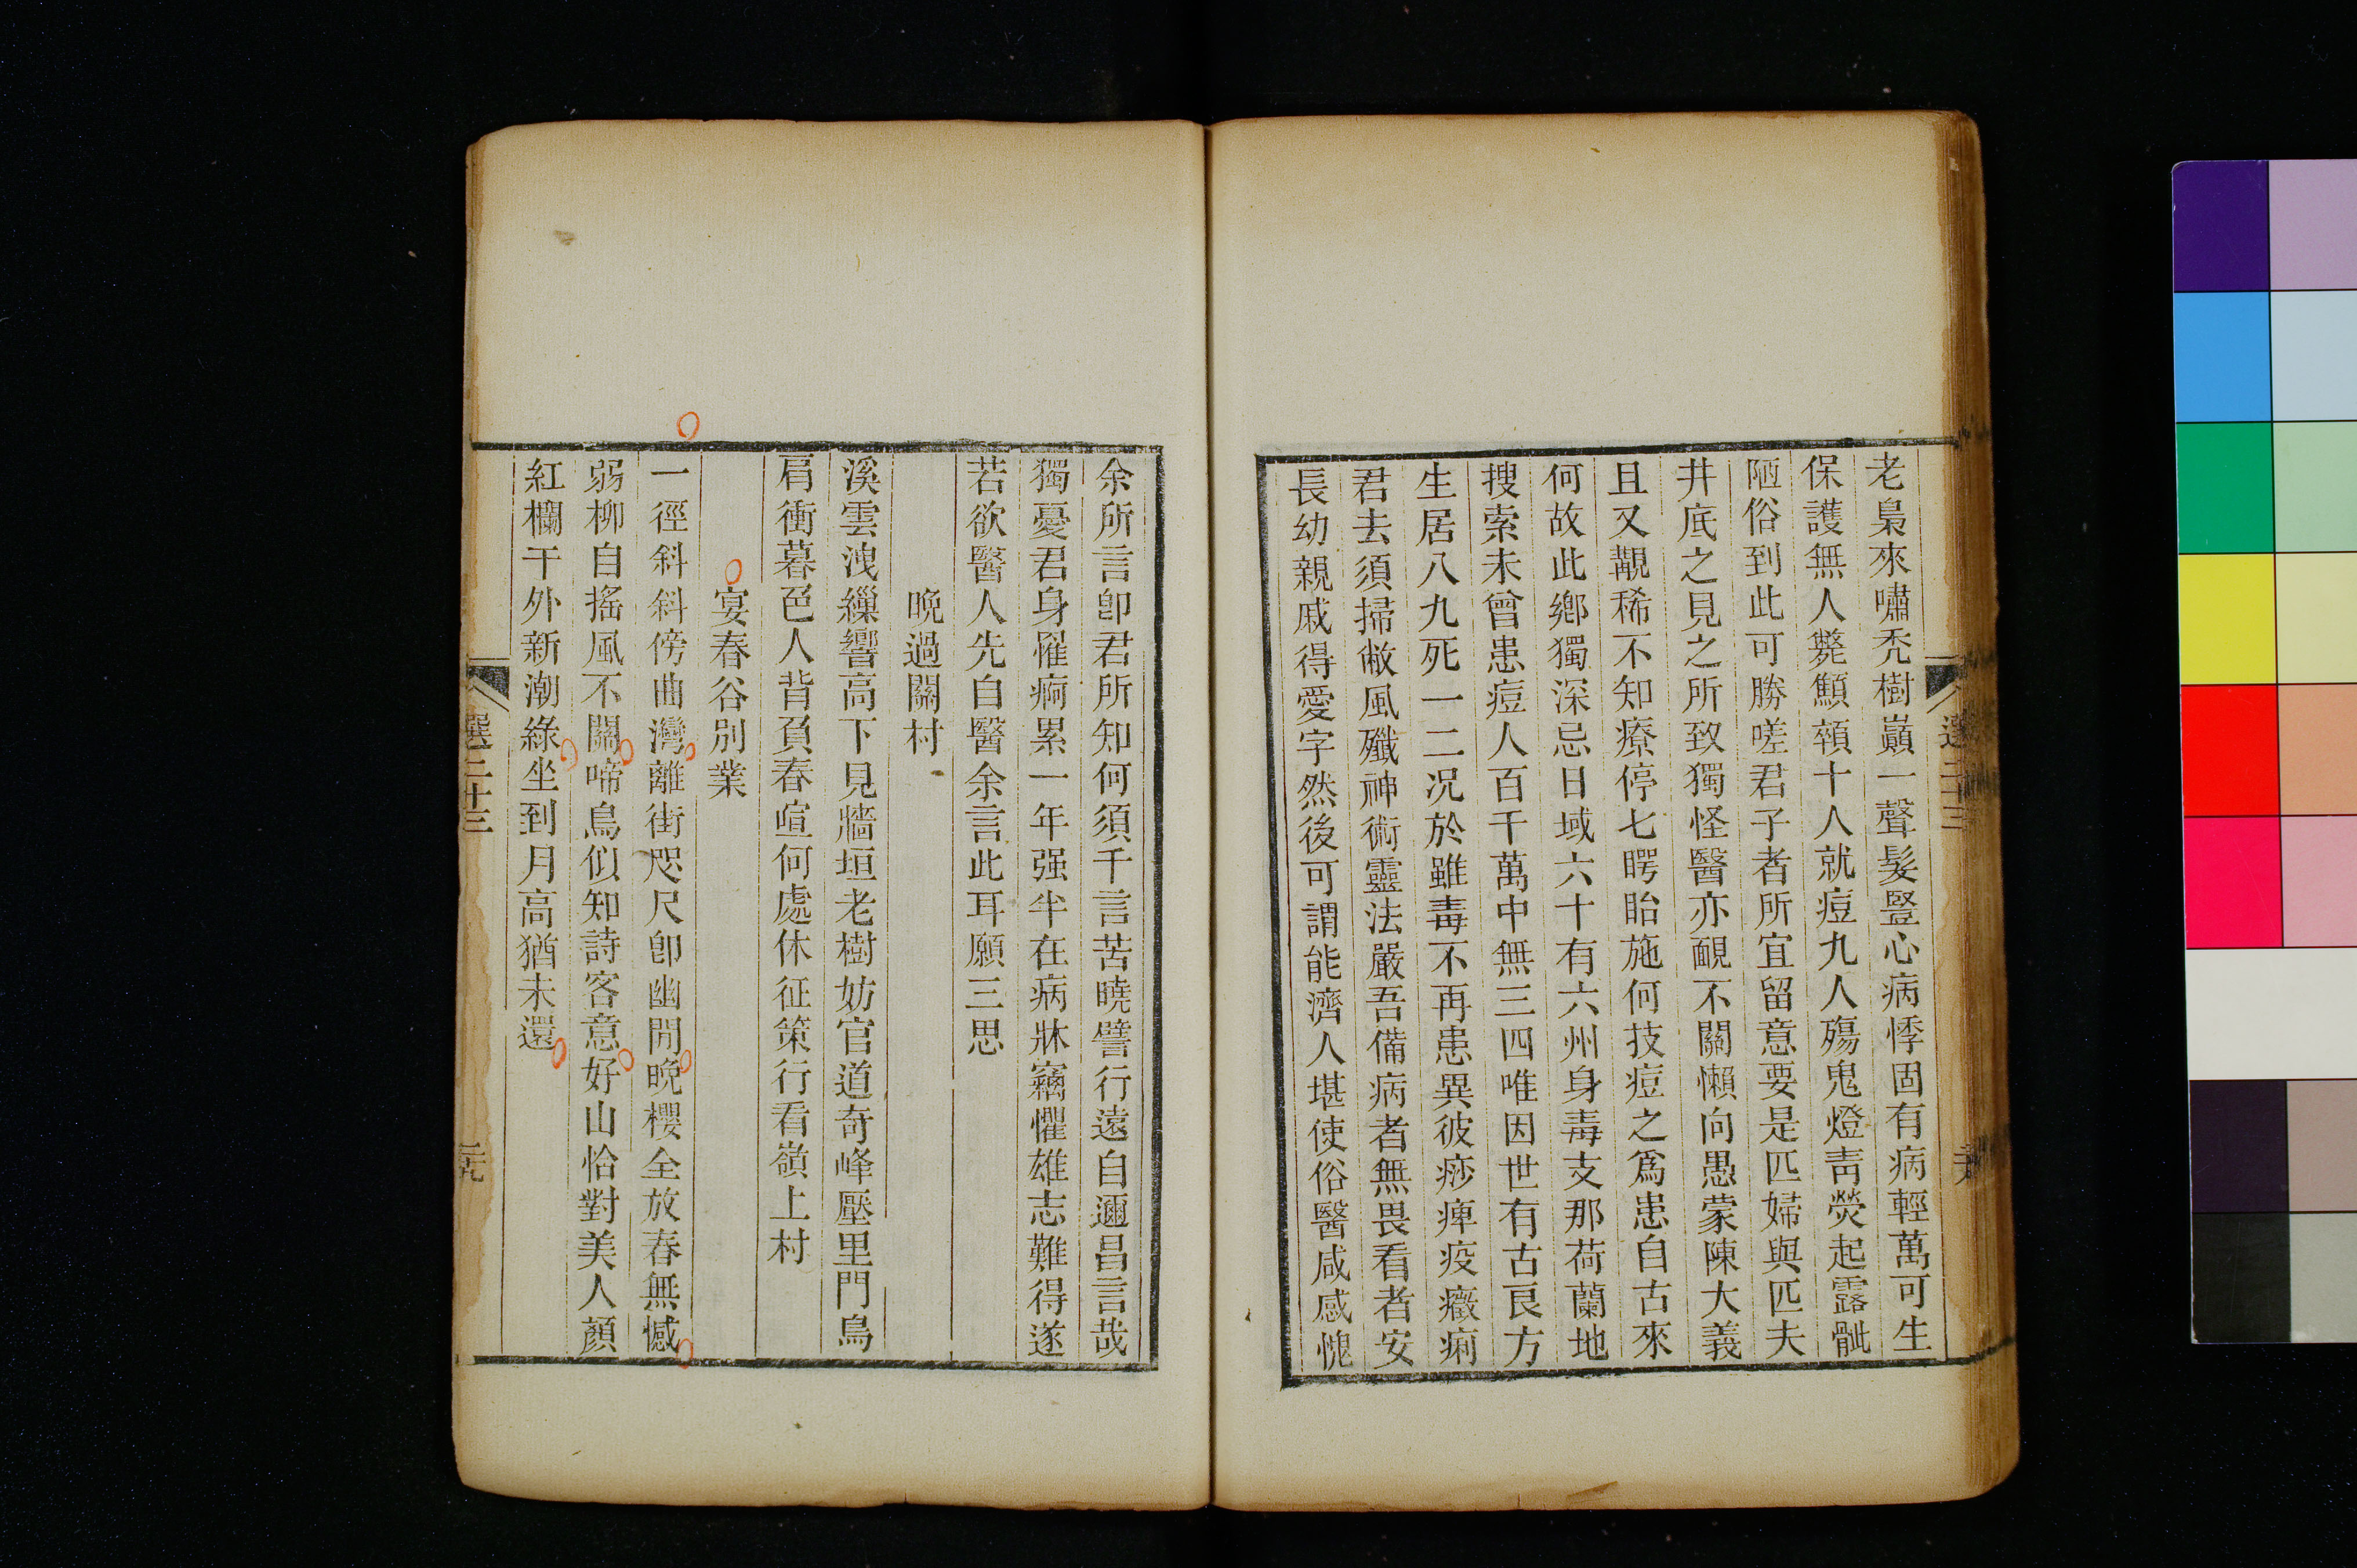 老梟來嘯禿樹巔一聲髮豎心病悸固有病輕萬可生
保護無人斃顦顇十人就痘九人殤鬼燈靑熒起露骴
陋俗到此可勝嗟君子者所宜留意要是匹婦與匹夫
井底之見之所致獨怪醫亦靦不關懶向愚蒙陳大義
且又覯稀不知療停七睜眙施何技痘之爲患自古來
何故此鄕獨深忌日域六十有六州身毒支那荷蘭地
搜索未曾患痘人百千萬中無三四唯因世有古良方
生居八九死一二况於雖毒不再患異彼痧痺疫癥痢
君去須掃敝風殲神術靈法嚴吾備病者無畏看者安
長幼親戚得愛字然後可謂能濟人堪使俗醫咸感愧
選二十三
余所言卽君所知何須千言苦曉譬行遠自邇昌言哉
獨憂君身罹痾累一年强半在病牀竊懼雄志難得遂
若欲醫人先自醫余言此耳願三思
晩過關村
溪雲洩繅響高下見牆垣老樹妨官道奇峰壓里門鳥
肩衝暮色人背負春喧何處休征策行看嶺上村
宴春谷別業
一徑斜斜傍曲灣離街咫尺卽幽閒晩櫻全放春無憾
弱柳自搖風不關啼鳥似知詩客意好山恰對美人顏
紅欄干外新潮綠坐到月高猶未還
選二十三